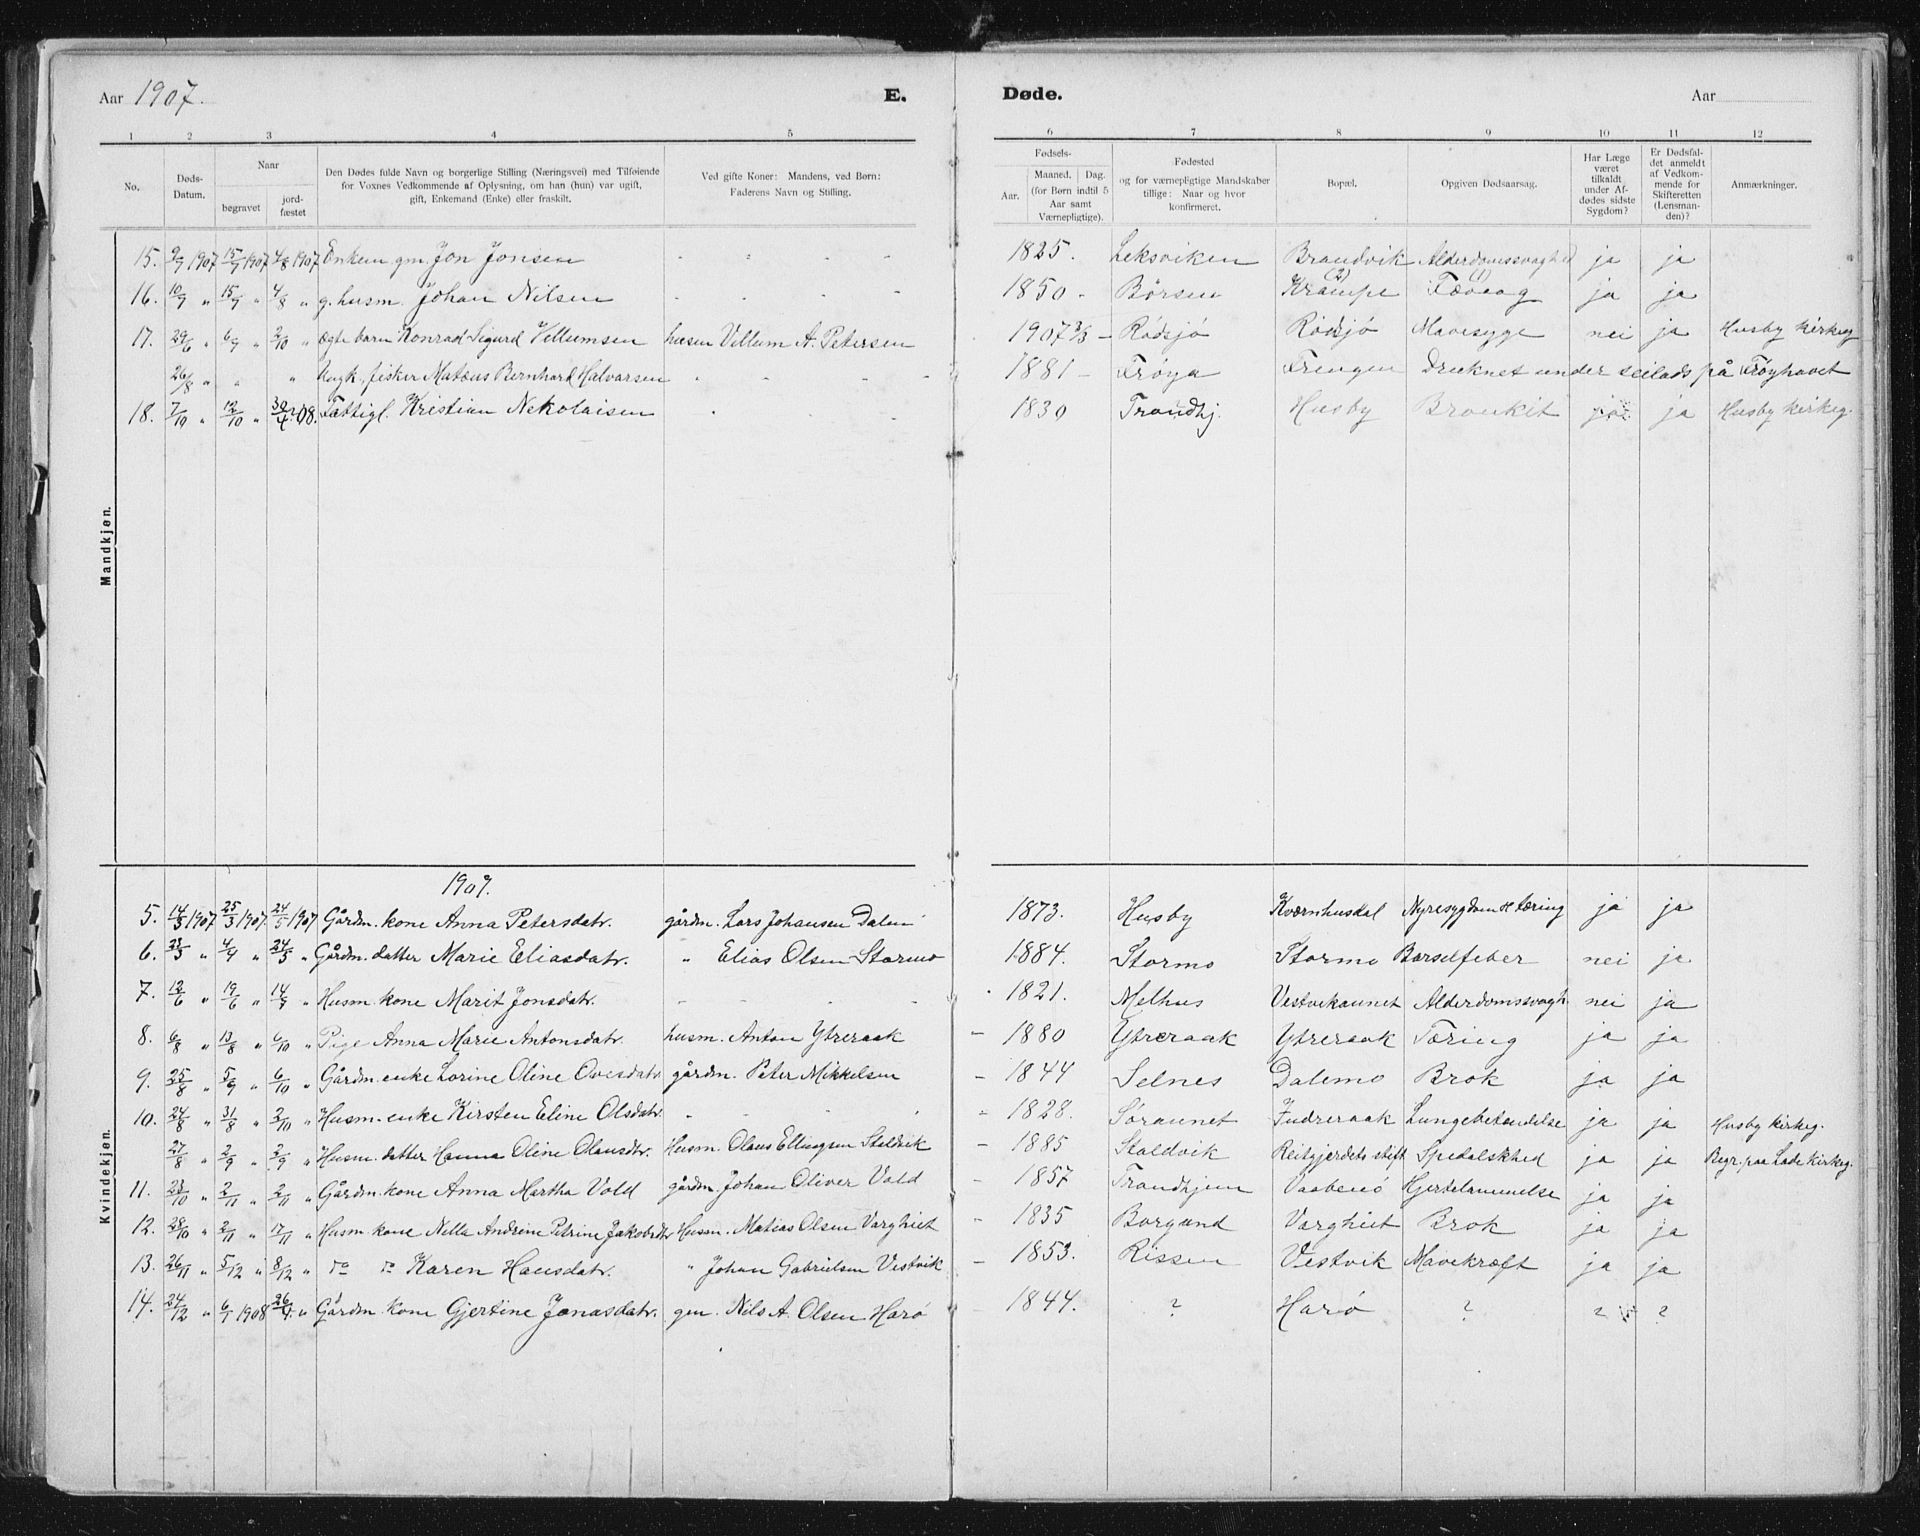 Aar 1907. E. Døde. Aar
1 2 3 4 5 6 7 8 9 10 11 12
No. Døds-Datum. Naar begravet jordfæstet Den Dødes fulde Navn og borgerlige Stilling (Næringsvei) med Tilføiende for Voxnes Vedkommende af Oplysning, om han (hun) var ugift, gift, Enkemand (Enke) eller fraskilt. Ved gifte Koner: Mandens, ved Børn: Faderens Navn og Stilling. Fødsels- Aar. Maaned. Dag. (for Børn indtil 5 Aar samt Værnepligtige). Fødested og for værnepligtige Mandskaber tillige: Naar og hvor konfirmeret. Bopæl. Opgiven Dødsaarsag. Har Læge været tilkaldt under Afdødes sidste Sygdom? Er Dødsfaldet anmeldt af Vedkommende for Skifteretten (Lensmanden)? Anmærkninger.
Mandkjøn.
15. 9/7 1907 15/7 1907 4/8 1907 Enkem. gm. Jon Jonsen " " " " 1825. Leksviken Brandvik Alderdomssvaghed ja ja
16. 10/7 " 15/7 " 4/8 " g. husm. Johan Nilsen " " " " 1850 - Börsen Krampe (2) (1) ja ja
17. 29/6 " 6/7 " 2/10 " Ægte barn Konrad Sigurd Villumsen husm Villum A. Petersen 1907 3/3 - Rödsjö Rödsjö Mavesyge nei ja Husby kirkeg
26/8 " " " Ungk. fisker Matæus Bernhard Halvarsen " " " " 1881 - Fröya Frengen Druknet under seilads på Fröyhavet
18. 7/10 " 12/10 " 30/4 08. Fattigl. Kristian Nekolaisen " " " 1830 Trondhj. Husby Bronkit ja ja Husby kirkeg.
Kvindekjøn.
1907.
5. 14/3 1907 25/3 1907. 24/5 1907 Gårdm. kone Anna Petersdatr. gårdm. Lars Johansen Dalen 1873. Husby Kværnhusdal Nyresygdom et tæring ja ja
6. 23/3 " 4/4 " 24/5 " Gårdm. datter Marie Eliasdatr. " Elias Olsen Stormo 1884. Stormo Stormo Barselfeber nei ja
7. 12/6 " 19/6 " 14/7 " Husm. kone Marit Jonsdatr. - - - - 1821. Melhus Vestvikaunet Alderdomssvagh. nei ja
8. 6/8 " 13/8 " 6/10 " Pige Anna Marie Antonsdatr. husm. Anton Ytreraak - 1880 Ytreraak Ytreraak Tæring ja ja
9. 25/8 " 5/9 " 6/10 " Gårdm. enke Lorine Oline Ovesdatr gårdm. Peter Mikkelsen - 1844 Selnes Dalemo Brok ja ja
10. 24/8 " 31/8 " 2/10 " Husm. enke Kirsten Eline Olsdatr. " " " " - 1828. Söraunet Indreraak Lungebetændelse ja ja Husby kirkeg.
27/8 " 2/9 " 2/9 " Husm. datter Hanna Oline Olausdtr. Husm. Olaus Ellingsen Staldvik - 1885 Staldvik Reitgjerdets stift Spedalskhed ja ja Begr. paa Lade kirkeg.
11. 23/10 " 2/11 " 2/11 " Gårdm. kone Anna Martha Vold gårdm. Johan Oliver Vold - 1857 Trondhjem Vaabenö Hjertelammelse ja ja
12. 28/10 " 2/11 " 17/11 " Husm. kone Nella Andrine Petrine Jakobsdtr Husm. Matias Olsen Varghiet - 1835 Borgund Varghiet Brok ja ja
13. 26/11 " 5/12 " 8/12 " do do Karen Hansdatr. " Johan Gabrielsen Vestvik - 1853. Rissen Vestvik Mavekræft ja ja
14. 24/12 " 6/1 1908 26/4 " Gårdm. kone Gjertine Jonasdatr. gm. Nils A. Olsen Harö 1844. ? Harö ? ? ?